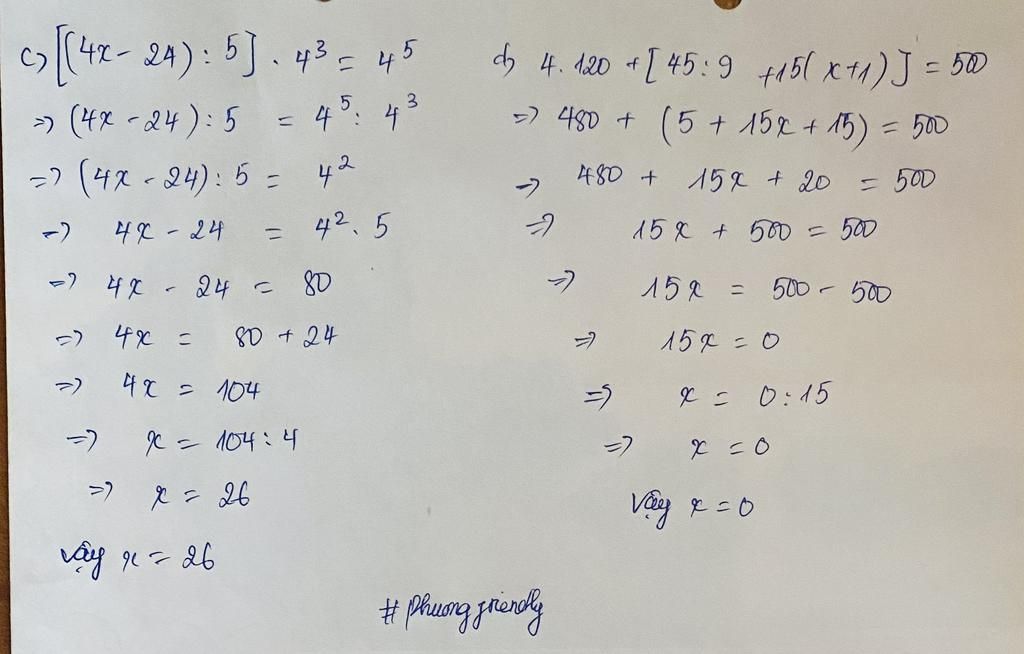 c) [(4x - 24) : 5] . 4³ = 4⁵
=> (4x - 24) : 5 = 4⁵ : 4³
=> (4x - 24) : 5 = 4²
=> 4x - 24 = 4² . 5
=> 4x - 24 = 80
=> 4x = 80 + 24
=> 4x = 104
=> x = 104 : 4
=> x = 26
Vậy x = 26
d) 4.120 + [45:9 +15(x+1)] = 500
=> 480 + (5 + 15x + 15) = 500
=> 480 + 15x + 20 = 500
=> 15x + 500 = 500
=> 15x = 500 - 500
=> 15x = 0
=> x = 0:15
=> x = 0
Vậy x = 0
# Phuong friendly